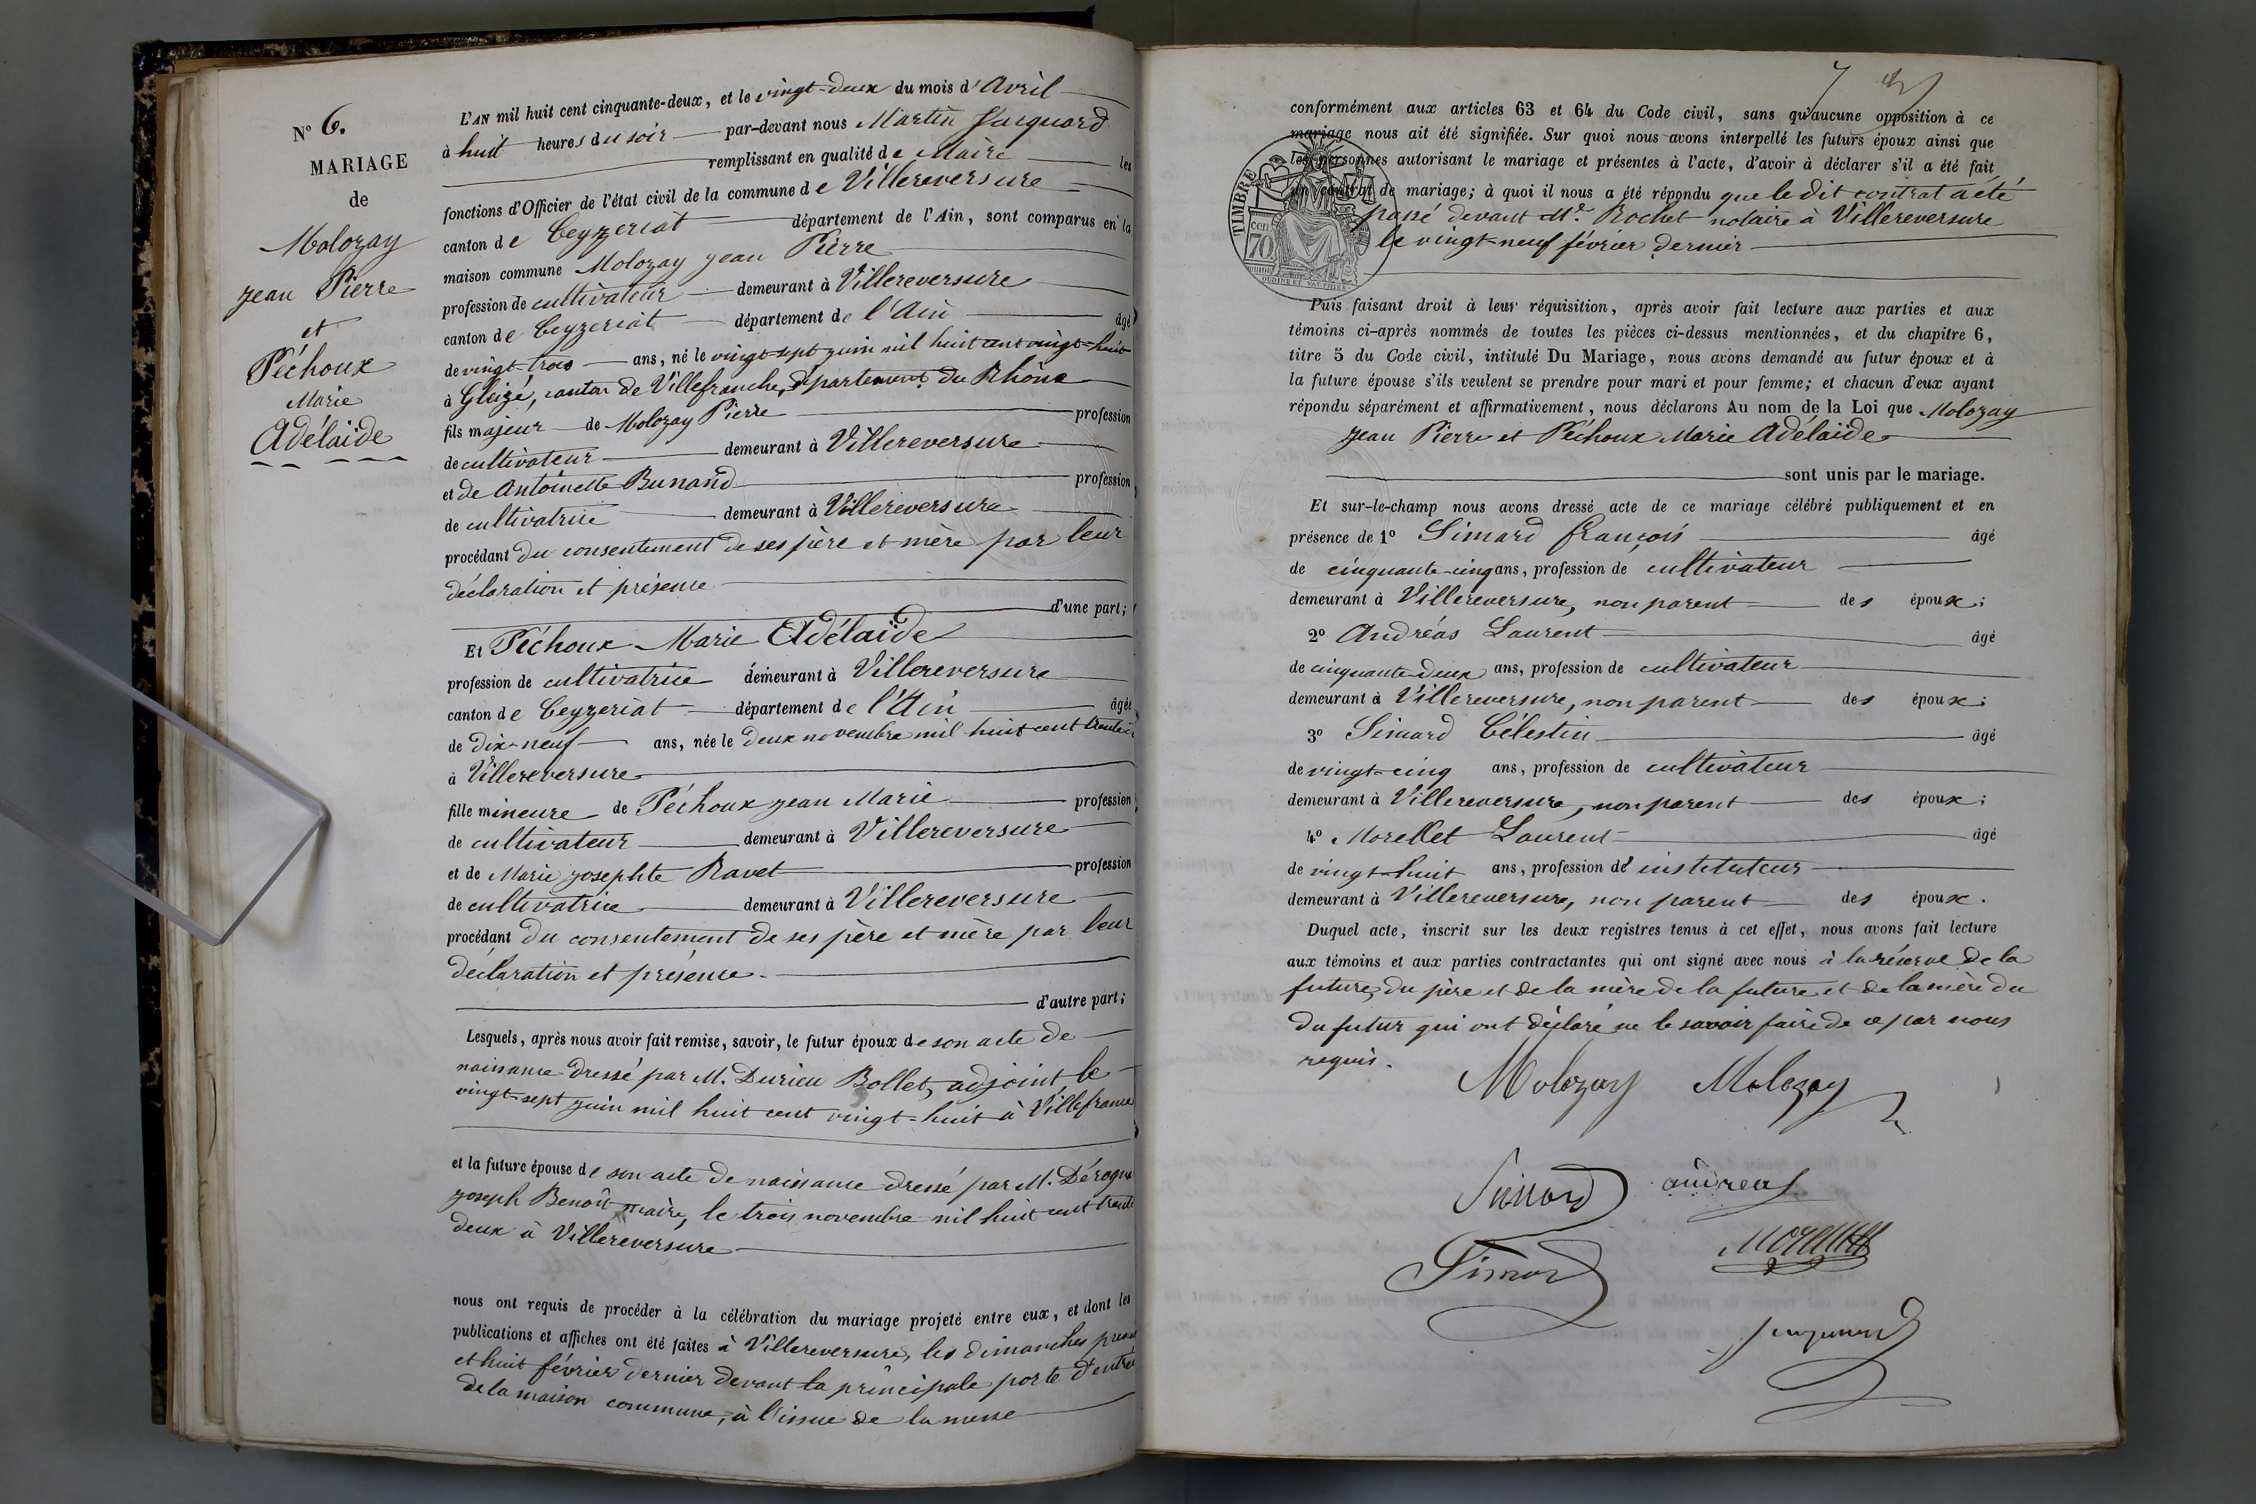 N° 6.
MARIAGE
de
Molozay
Jean Pierre
et
Péchoux
Marie
Adélaide
L'AN mil huit cent cinquante-deux, et le vingt-deux du mois d'Avril
à huit heures du soir par-devant nous Martin Jacquard
remplissant en qualité de Maire les
fonctions d'Officier de l'état civil de la commune de Villereversure
canton de Ceyzeriat département de l'Ain, sont comparus en la
maison commune Molozay Jean Pierre
profession de cultivateur demeurant à Villereversure
canton de Ceyzeriat département de l'Ain âgé
de vingt-trois ans, né le vingt-sept juin mil huit cent vingt-huit
à Gleizé, canton de Villefranche, département du Rhône
fils majeur de Molozay Pierre profession
de cultivateur demeurant à Villereversure
et de Antoinette Bunand profession
de cultivatrice demeurant à Villereversure
procédant du consentement de ses père et mère par leur
déclaration et présence
d'une part;
Et Péchoux Marie Adélaide
profession de cultivatrice demeurant à Villereversure
canton de Ceyzeriat département de l'Ain âgée
de dix-neuf ans, née le deux novembre mil huit cent
à Villereversure
fille mineure de Péchoux Jean Marie profession
de cultivateur demeurant à Villereversure
et de Marie Josephte Ravet profession
de cultivatrice demeurant à Villereversure
procédant du consentement de ses père et mère par leur
déclaration et présence.
d'autre part;
Lesquels, après nous avoir fait remise, savoir, le futur époux de son acte de
naissance dressé par M. Durieu Bollet, adjoint, le
vingt-sept juin mil huit cent vingt-huit à Villefranche
et la future épouse de son acte de naissance dressé par M.
Joseph Benoît maire, le trois novembre mil huit cent trente
deux à Villereversure
nous ont requis de procéder à la célébration du mariage projeté entre eux, et dont les
publications et affiches ont été faites à Villereversure, les dimanches premier
et huit février dernier devant la principale porte d'entrée
de la maison commune, à l'issue de la messe
7
conformément aux articles 63 et 64 du Code civil, sans qu'aucune opposition à ce
mariage nous ait été signifiée. Sur quoi nous avons interpellé les futurs époux ainsi que
les personnes autorisant le mariage et présentes à l'acte, d'avoir à déclarer s'il a été fait
un contrat de mariage; à quoi il nous a été répondu que le dit contrat a été
passé devant Me. Rochet notaire à Villereversure
le vingt-neuf février dernier
TIMBRE
cen
70
Puis faisant droit à leur réquisition, après avoir fait lecture aux parties et aux
témoins ci-après nommés de toutes les pièces ci-dessus mentionnées, et du chapitre 6,
titre 5 du Code civil, intitulé Du Mariage, nous avons demandé au futur époux et à
la future épouse s'ils veulent se prendre pour mari et pour femme; et chacun d'eux ayant
répondu séparément et affirmativement, nous déclarons Au nom de la Loi que Molozay
Jean Pierre et Péchoux Marie Adélaide
sont unis par le mariage.
Et sur-le-champ nous avons dressé acte de ce mariage célébré publiquement et en
présence de 1° Simard françois âgé
de cinquante-cinq ans, profession de cultivateur
demeurant à Villereversure, non parent des époux;
2° Andréas Laurent âgé
de cinquante-deux ans, profession de cultivateur
demeurant à Villereversure, non parent des époux;
3° Simard Célestin âgé
de vingt-cinq ans, profession de cultivateur
demeurant à Villereversure, non parent des époux;
4° Morellet Laurent âgé
de vingt-huit ans, profession d'instituteur
demeurant à Villereversure, non parent des époux.
Duquel acte, inscrit sur les deux registres tenus à cet effet, nous avons fait lecture
aux témoins et aux parties contractantes qui ont signé avec nous à la réserve de la
future, du père et de la mère de la future et de la mère du
du futur qui ont déclaré ne le savoir faire de ce par nous
requis.
Molozay Molozay
Simard andreas
Simard Morellet
Jacquard